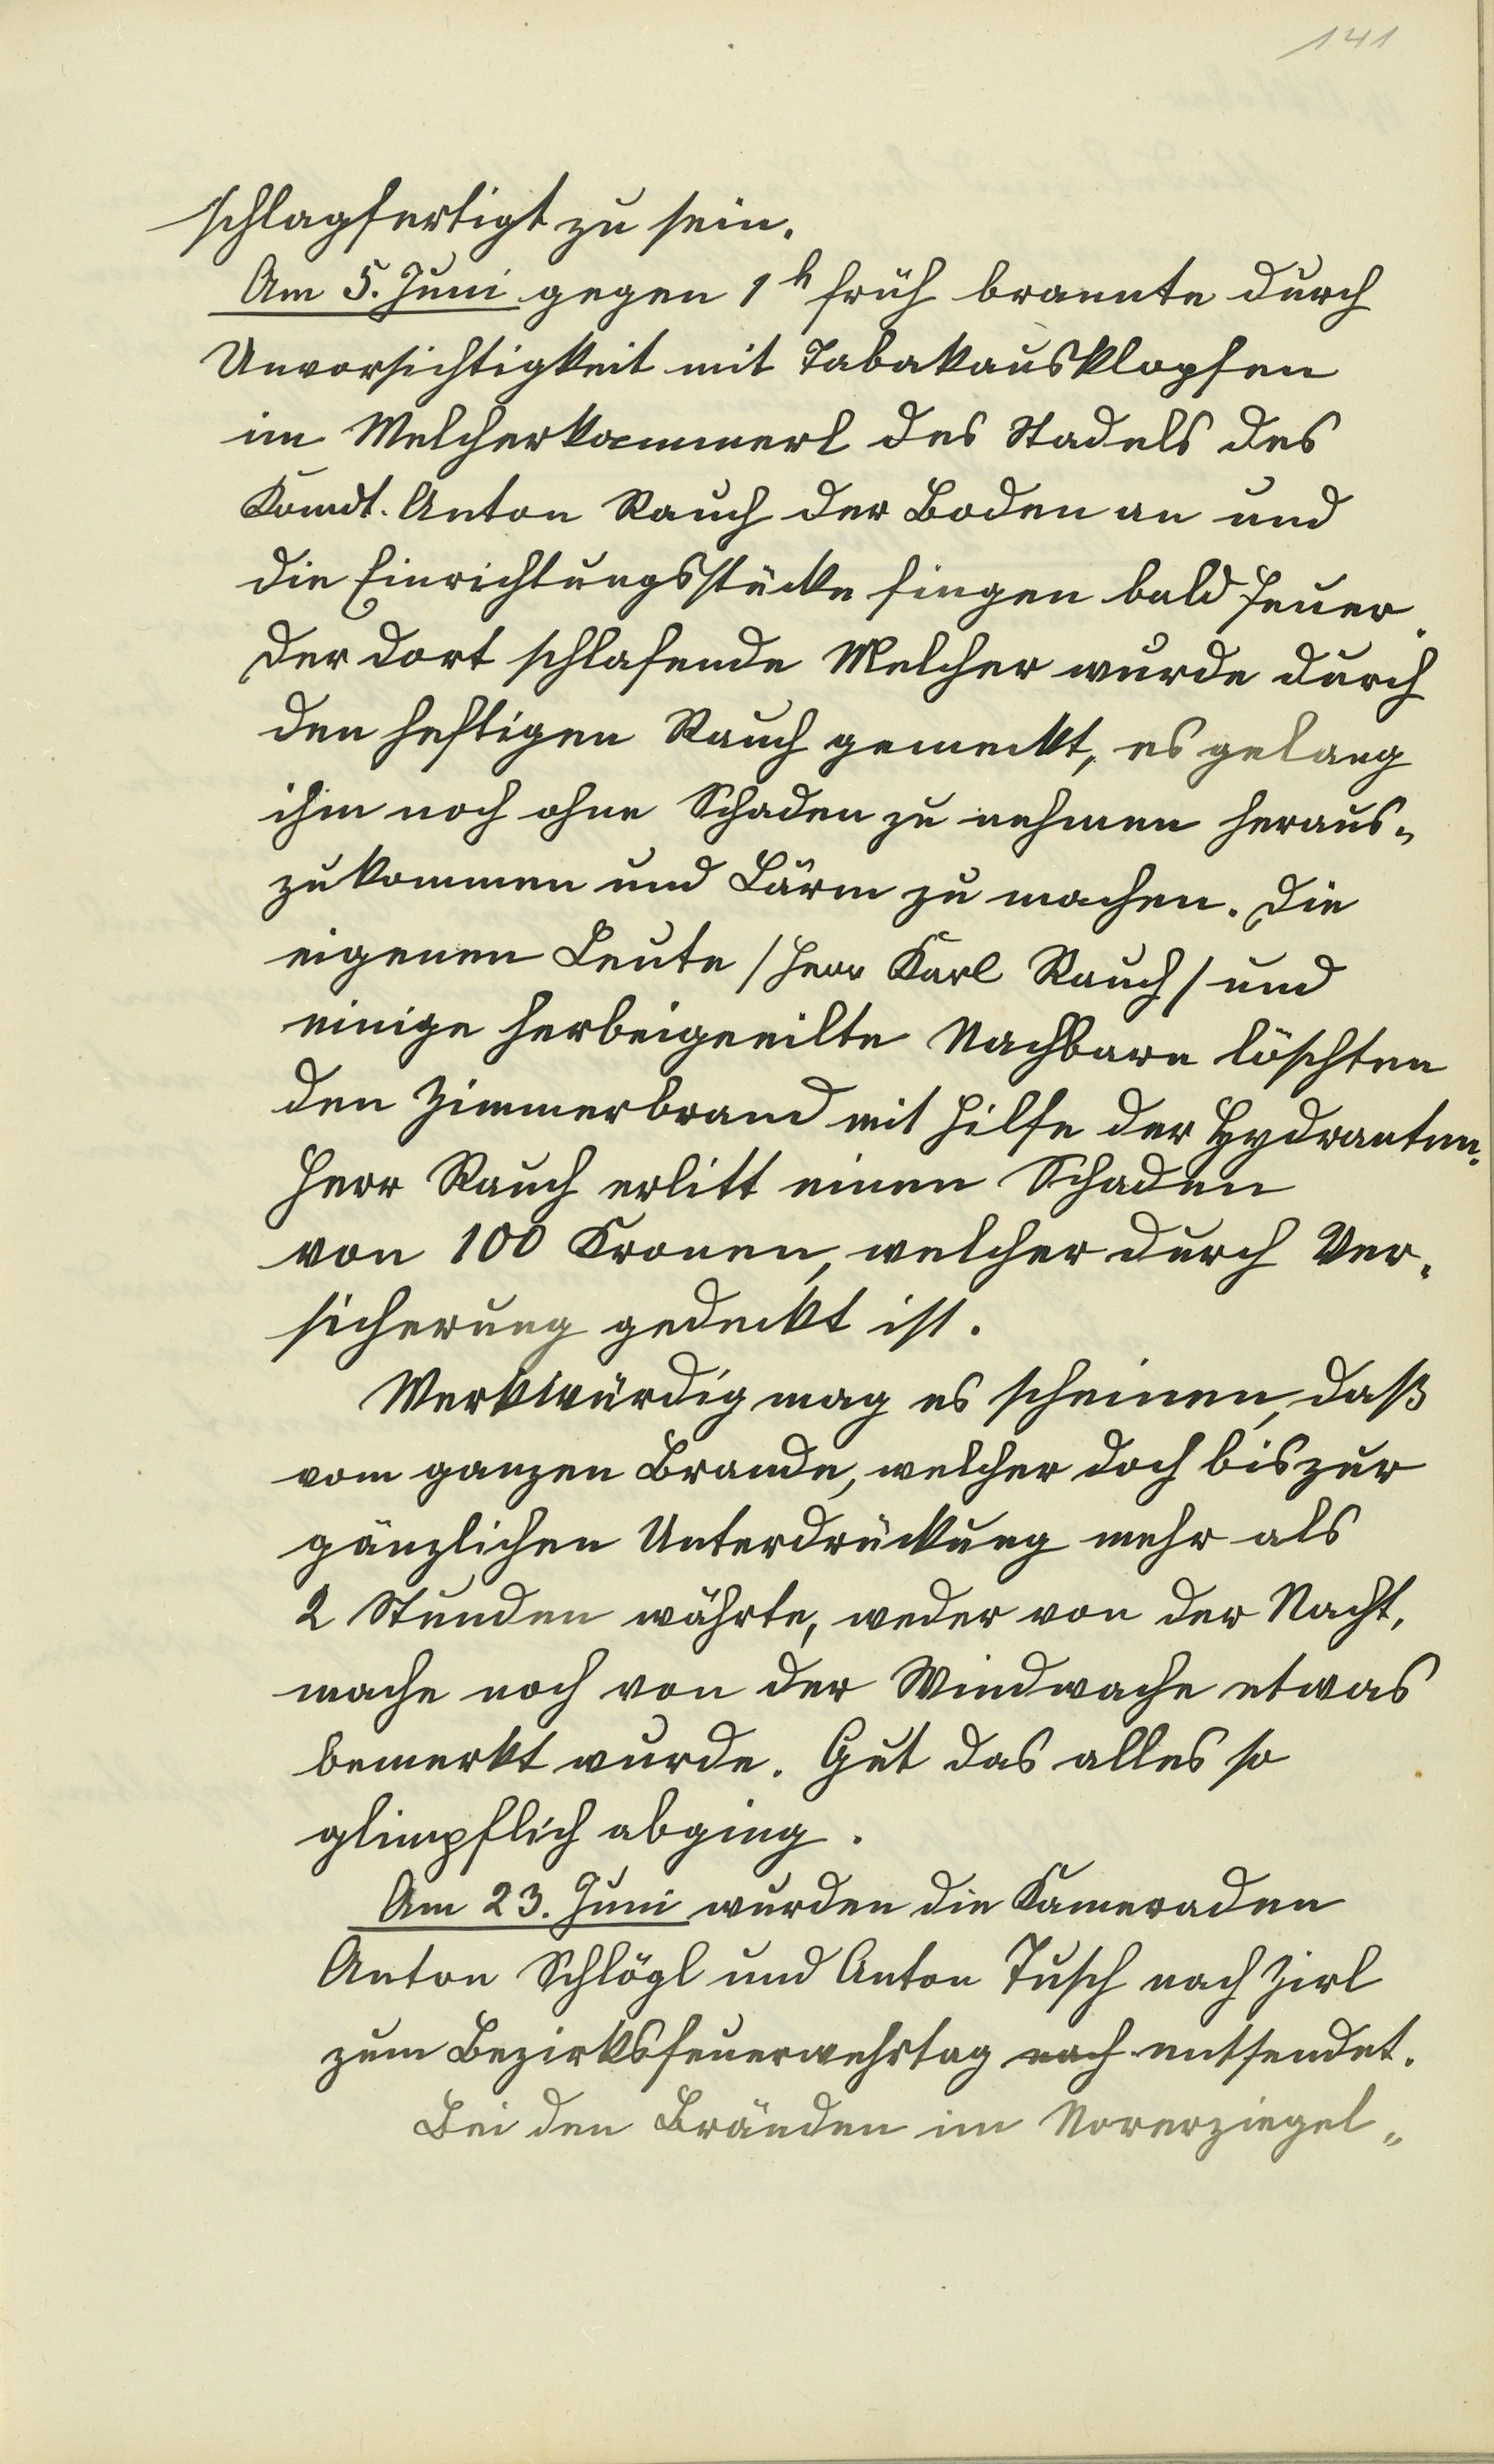 141
schlagfertigt zu sein.
Am 5. Juni gegen 1h früh brannte durch
Unvorsichtigkeit mit Tabakausklopfen
im Melcherkammerl des Stadels des
Komdt. Anton Rauch der Boden an und
die Einrichtungsstücke fingen bald Feuer.
Der dort schlafende Melcher wurde durch
den heftigen Rauch geweckt, es gelang
ihm noch ohne Schaden zu nehmen heraus-
zukommen und Lärm zu machen. Die
eigenen Leute /Herr Karl Rauch/ und
einige herbeigeeilte Nachbarn löschten
den Zimmerbrand mit Hilfe der Hydranten.
Herr Rauch erlitt einen Schaden
von 100 Kronen, welcher durch Ver-
sicherung gedeckt ist.
Merkwürdig mag es scheinen, daß
vom ganzen Brande, welcher doch bis zur
gänzlichen Unterdrückung mehr als
2 Stunden währte, weder von der Nacht-
wache noch von der Windwache etwas
bemerkt wurde. Gut das alles so
glimpflich abging.
Am 23. Juni wurden die Kameraden
Anton Schlögl und Anton Tusch nach Zirl
zum Bezirksfeuerwehrtag nach entsendet.
Bei den Bränden im Norerziegel-